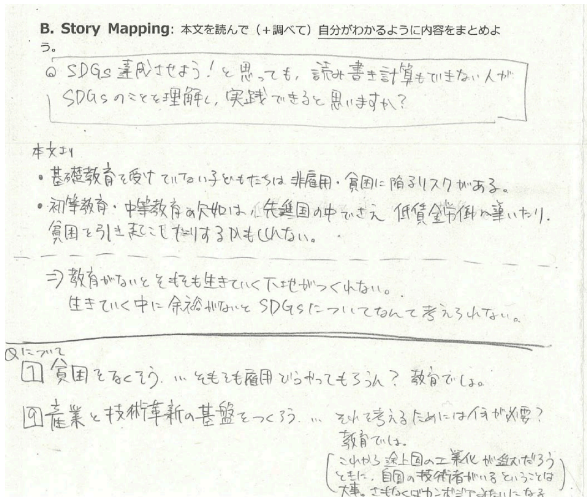 B. Story Mapping: 本文を読んで（+調べて）自分がわかるように内容をまとめよ
う。
Q SDGs 達成させよう！と思っても、読み書き計算もできない人が
SDGsのことを理解し、実践できると思いますか？
本文より
・基礎教育を受けていない子どもたちは 非雇用・貧困に陥るリスクがある。
・初等教育・中等教育の欠如は、先進国の中でさえ 低賃金労働に導いたり、
貧困を引き起こしたりするかもしれない。
⇒ 教育がないとそもそも生きていく下地がつくれない。
生きていく中に余裕がないと SDGsについてなんて考えられない。
Qについて
1 貧困をなくそう ... そもそも雇用どうやってもらうん？ 教育でしょ。
9 産業と技術革新の基盤をつくろう ... それを考えるためには何が必要？
教育でしょ。
(これから途上国の工業化が盛んだろう
ときに、自国の技術者がいるということは
大事。さもなくば